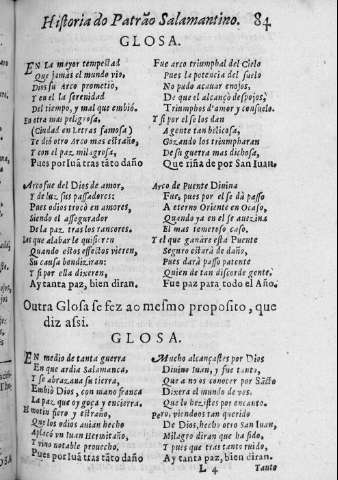 Historia do Patrão Salamantino. 84
GLOSA.
EN la mayor tempestad
Que jamas el mundo vio,
Dios su Arco prometio,
Y en el la serenidad
Del tiempo, y mal que embiò.
En otra mas peligrosa,
(Ciudad en Letras famosa)
Te diò otro Arco mas estraño
Y con el paz milagrosa,
Pues por Iuã tras tãto dãño
Arco fue del Dios de amor,
Y de luz sus passadores:
Pues odios trocò en amores,
Siendo el assegurador
De la paz tras los rancores.
Los que alabarle quisieren
Quando estos effetos vieren,
Su causa bendiziran:
Y si por ella dixeren,
Ay tanta paz, bien diran.
Fue arco triumphal del Cielo
Pues la potencia del suelo
No pudo acauar enojos,
De que el alcançò despojos,
Triumphos d'amor y consuelo.
Y si por el se los dan
Agente tan bilicosa,
Gozando los triumpharan
De su guerra mas dichosa,
Que riña de por San Iuan.
Arco de Puente Diuina
Fue, pues por el se dà passo
A eterno Oriente en Ocaso,
Quando ya en el se auezina
El mas temeroso caso.
Y el que ganàre esta Puente
Seguro estarà de daño,
Pues darà passo patente
Quien de tan discorde gente
Fue paz para todo el Año.
Outra Glosa se fez ao mesmo proposito, que
diz assi.
GLOSA.
EN medio de tanta guerra
En que ardia Salamanca,
Y se abrazaua su tierra,
Embiò Dios, con mano franca
La paz que oy goça y encierra.
El motin fiero y estraño,
Que los odios auian hecho
Aplacò vn Iuan Hermitaño,
Y vino notable prouecho,
Pues por Iuã tras tãto dãño
Mucho alcançastes por Dios
Diuino Iuan, y fue tanto,
Que a no os conocer por Sãcto
Dixera el mundo de vos.
Que lo hezistes por encanto.
Pero, viendoos tan querido
De Dios, hecho otro San Iuan,
Milagro diran que ha sido,
Y pues que tras tanto ruido,
Ay tanta paz, bien diran.
L 4 Tanto